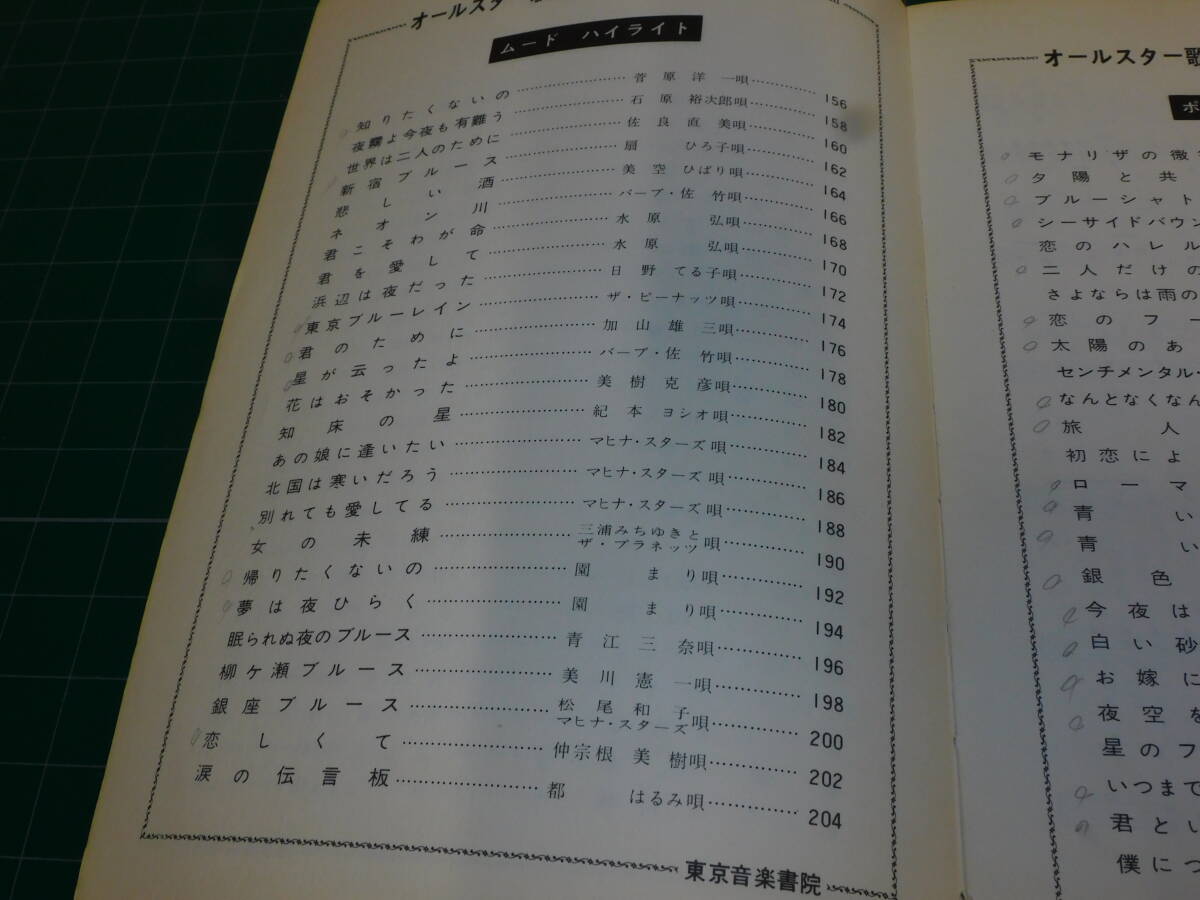 オールスター
ムード ハイライト
知りたくないの 菅原洋一唄 156
夜霧よ今夜も有難う 石原裕次郎唄 158
世界は二人のために 佐良直美唄 160
新宿ブルース 扇ひろ子唄 162
悲しい酒 美空ひばり唄 164
ネオン川 バーブ・佐竹唄 166
君こそわが命 水原弘唄 168
君を愛して 水原弘唄 170
浜辺は夜だった 日野てる子唄 172
東京ブルーレイン ザ・ピーナッツ唄 174
君のために 加山雄三唄 176
星が云ったよ バーブ・佐竹唄 178
花はおそかった 美樹克彦唄 180
知床の星 紀本ヨシオ唄 182
あの娘に逢いたい マヒナ・スターズ唄 184
北国は寒いだろう マヒナ・スターズ唄 186
別れても愛してる マヒナ・スターズ唄 188
女の未練 三浦みちゆきとザ・プラネッツ唄 190
帰りたくないの 園まり唄 192
夢は夜ひらく 園まり唄 194
眠られぬ夜のブルース 青江三奈唄 196
柳ケ瀬ブルース 美川憲一唄 198
銀座ブルース 松尾和子マヒナ・スターズ唄 200
恋しくて 仲宗根美樹唄 202
涙の伝言板 都はるみ唄 204
東京音楽書院
オールスター歌
ポ
モナリザの微
夕陽と共
ブルーシャト
シーサイドバウン
恋のハレル
二人だけの
さよならは雨の
恋のフー
太陽のあ
センチメンタル・
なんとなくなん
旅人
初恋によ
ローマ
青い
青い
銀色
今夜は
白い砂
お嫁に
夜空を
星のフ
いつまで
君とい
僕につ